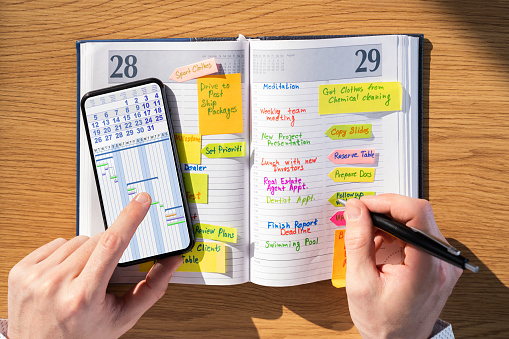 28
29
Sport Clothes
Drive to
Post
Ship
Packages
Set Prioriti
Dealer
Review Plans
Clients
Table
4 5 6 7 8 9 10
11 12 13 14 15 16 17
18 19 20 21 22 23 24
25 26 27 28 29 30 31
Meditation
Weekly team
meeting
New Project
Presentation
Lunch with new
investors
Real Estate
Agent Appt.
Dentist Appt.
Finish Report
Deadline
Swimming Pool
Get Clothes from
Chemical cleaning
Copy Slides
Reserve Table
Prepare Docs
Followup